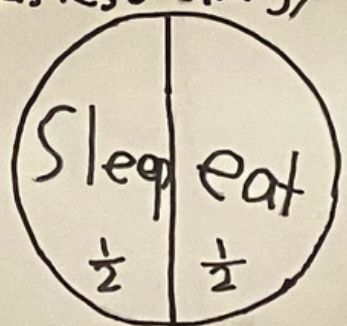 Sleep eat
1/2 1/2